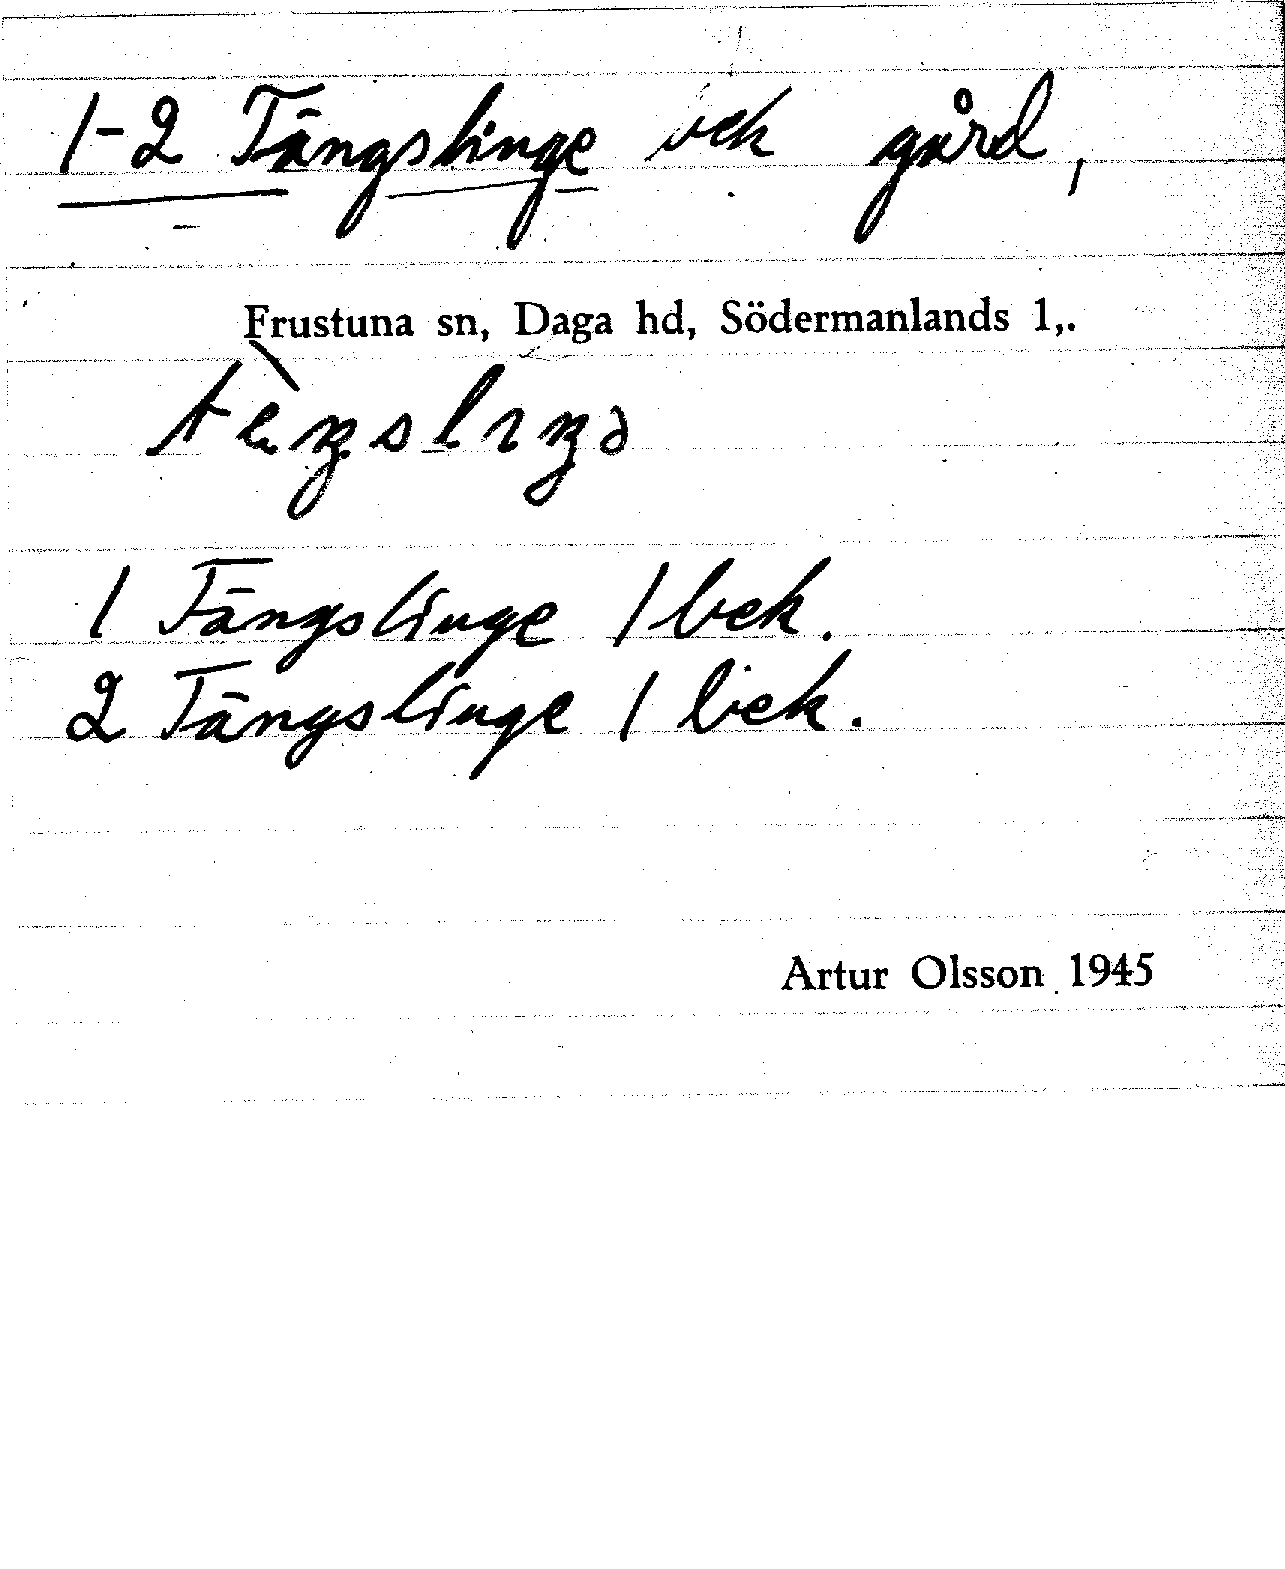 1-2 Tängslinge bek gård,
Frustuna sn, Daga hd, Södermanlands l,.
tèŋslıŋə
1 Tängslinge 1 bek.
2 Tängslinge 1 bek.
Artur Olsson 1945